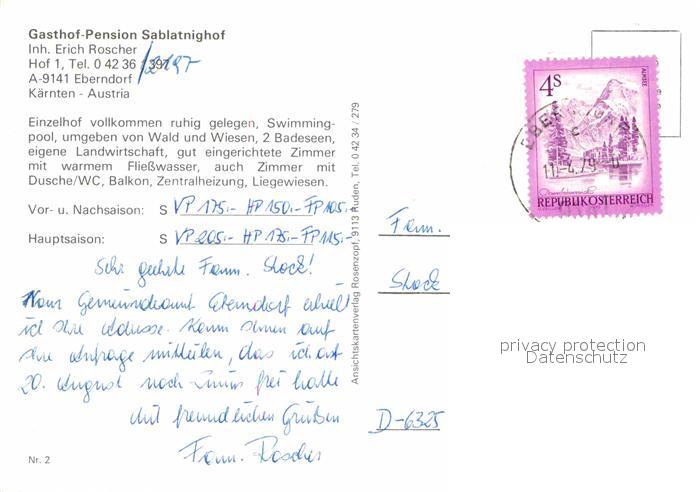 Gasthof-Pension Sablatnighof
Inh. Erich Roscher
Hof 1, Tel. 0 42 36 / 397
2197
A-9141 Eberndorf
Kärnten - Austria
Einzelhof vollkommen ruhig gelegen, Swimming-
pool, umgeben von Wald und Wiesen, 2 Badeseen,
eigene Landwirtschaft, gut eingerichtete Zimmer
mit warmem Fließwasser, auch Zimmer mit
Dusche/WC, Balkon, Zentralheizung, Liegewiesen.
Vor- u. Nachsaison: S VP 175.- HP 150.- FP 105.-
Hauptsaison: S VP 205.- HP 175.- FP 115.-
Sehr geehrte Fam. Stock!
Vom Gemeindeamt Eberndorf erhielt
ich Ihre Adresse. Kann Ihnen auf
Ihre Anfrage mitteilen, das ich ast
20. August noch Zimmer frei hätte
Mit freundlichen Grüßen
Fam. Roscher
Nr. 2
Ansichtskartenverlag Rosenzopf, 9113 Ruden, Tel. 0 42 34 / 279
4S
ALMSEE
REPUBLIK ÖSTERREICH
EBERNDORF
11.-4.79
Fam.
Stock
privacy protection
Datenschutz
D-6325